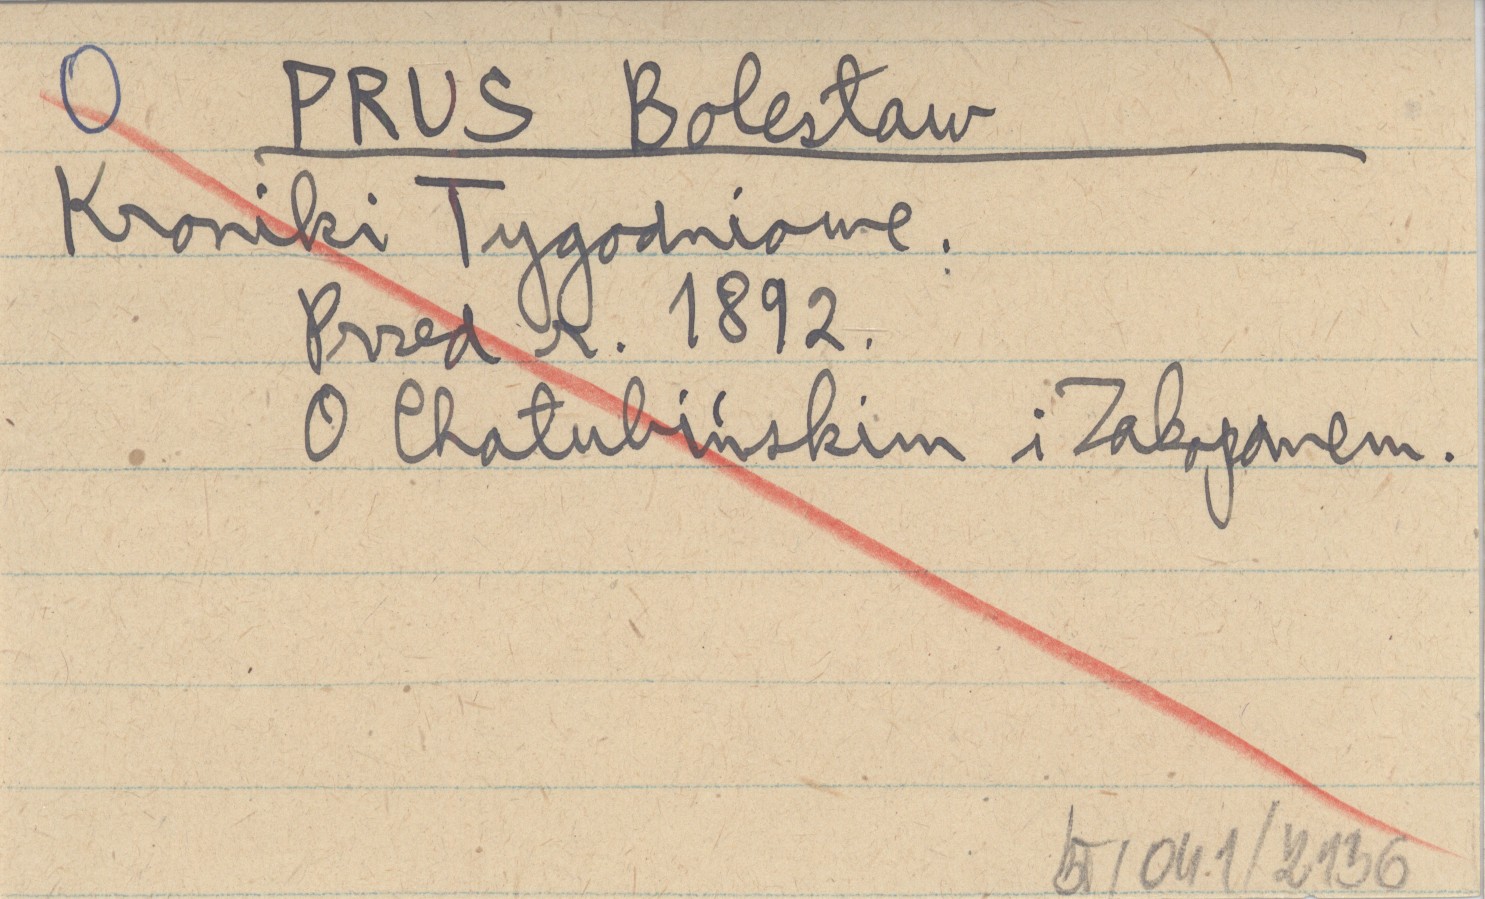 O PRUS Bolesław
Kroniki Tygodniowe.
Przed r. 1892.
O Chałubińskim i Zakopanem.
/041/2136